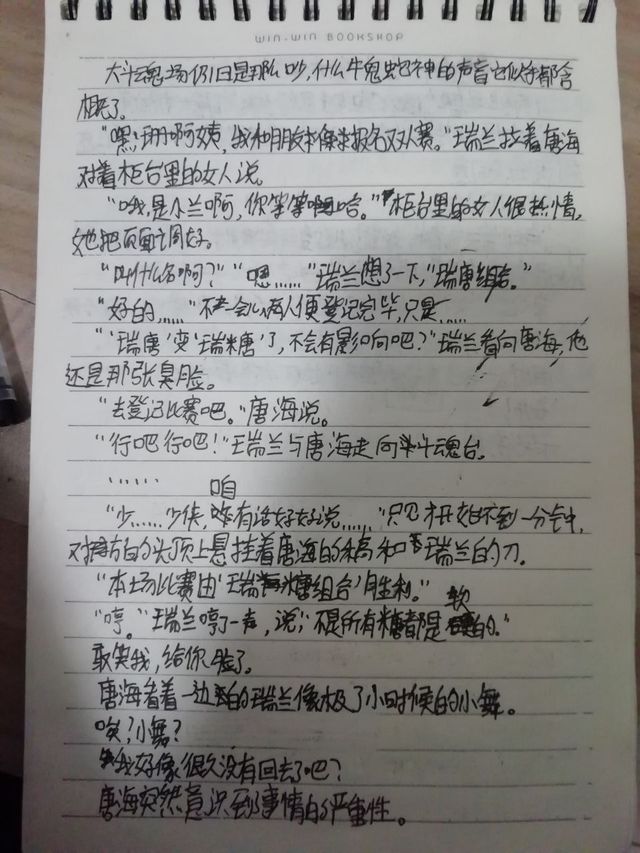 WIN-WIN BOOKSHOP
大斗魂场仍旧是那么吵,什么牛鬼蛇神的声音它似乎都含
概了。
"嘿,珊啊姨,我和朋友来报名双人赛。"瑞兰拉着唐海
对着柜台里的女人说。
"哦,是小兰啊,你等等哈。"柜台里的女人很热情,
她把页面调好。
"叫什么名啊?""嗯……"瑞兰想了一下,"瑞唐组合。"
"好的……"不一会儿两人便登记完毕,只是……
"'瑞唐'变'瑞糖'了,不会有影响吧?"瑞兰看向唐海,他
还是那张臭脸。
"去登记比赛吧。"唐海说。
"行吧行吧!"瑞兰与唐海走向斗魂台。
……
咱
"少……少侠,有话好好说……"只见才开始不到一分钟,
对方的头顶上悬挂着唐海的稿和瑞兰的刀。
"本场比赛由'瑞糖组合'胜利。"
"哼。"瑞兰哼了一声,说;"不是所有糖都是软的。"
敢笑我,给你脸了。
唐海看着一边的瑞兰像极了小时候的小舞。
唉?小舞?
我好像很久没有回去了吧?
唐海突然意识到了事情的严重性。